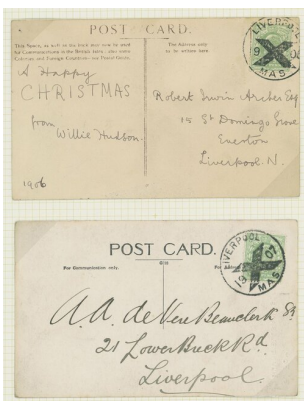 POST CARD.
This Space, as well as the back may now be used
for Communications in the British Isles, also some
Colonies and Foreign Countries—see Postal Guide.
The Address only
to be written here.
LIVERPOOL
9
XMAS
A Happy
CHRISTMAS
from
Willie Hudson.
1906
Robert Irwin Archer Esq
15 St Domingo Grove
Everton
Liverpool. N.
POST CARD.
For Communication only.
LIVERPOOL
07
XMAS
A. A. de Vere Beauclerk Esq
21 Lower Breck Rd
Liverpool.